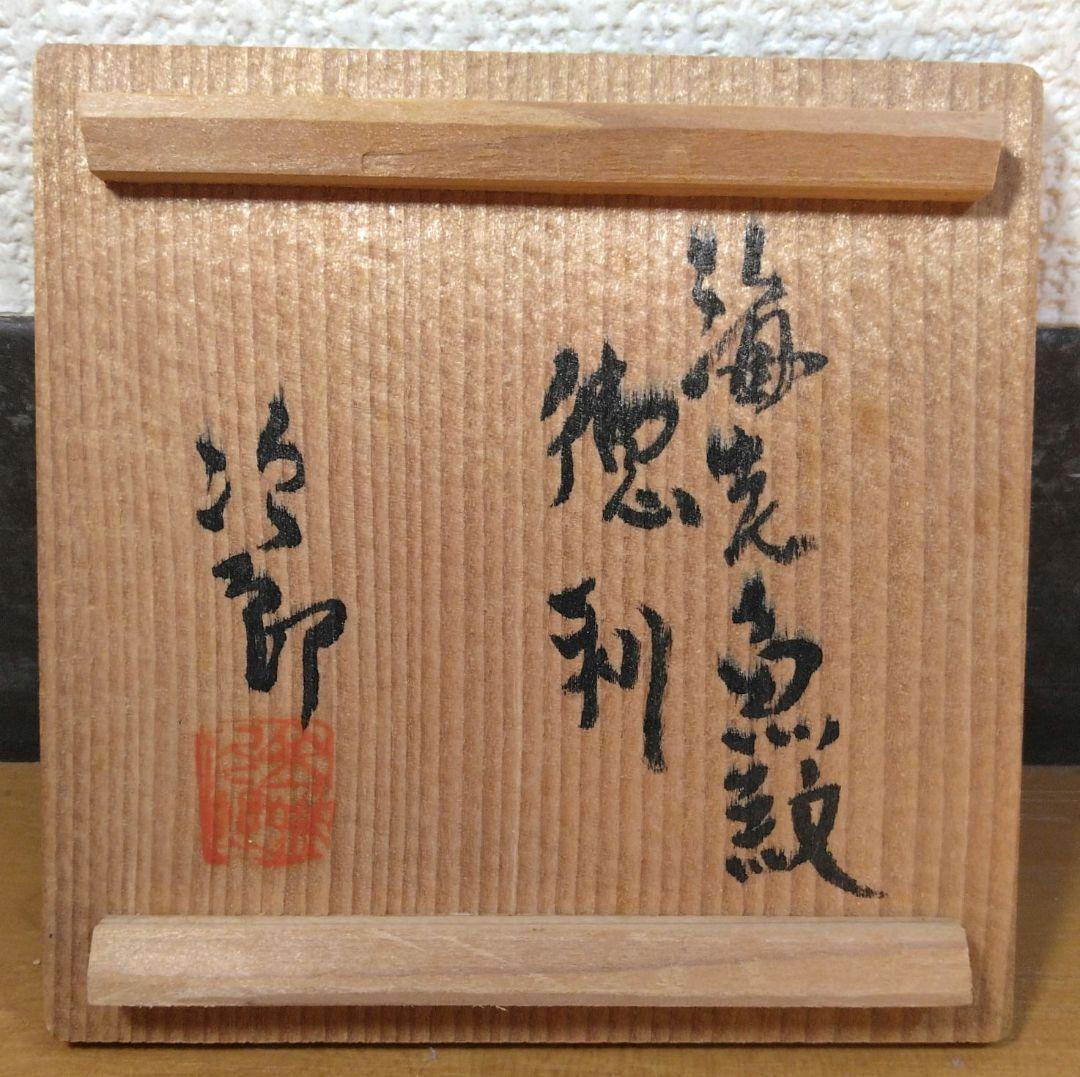 海老魚紋
徳利
次郎